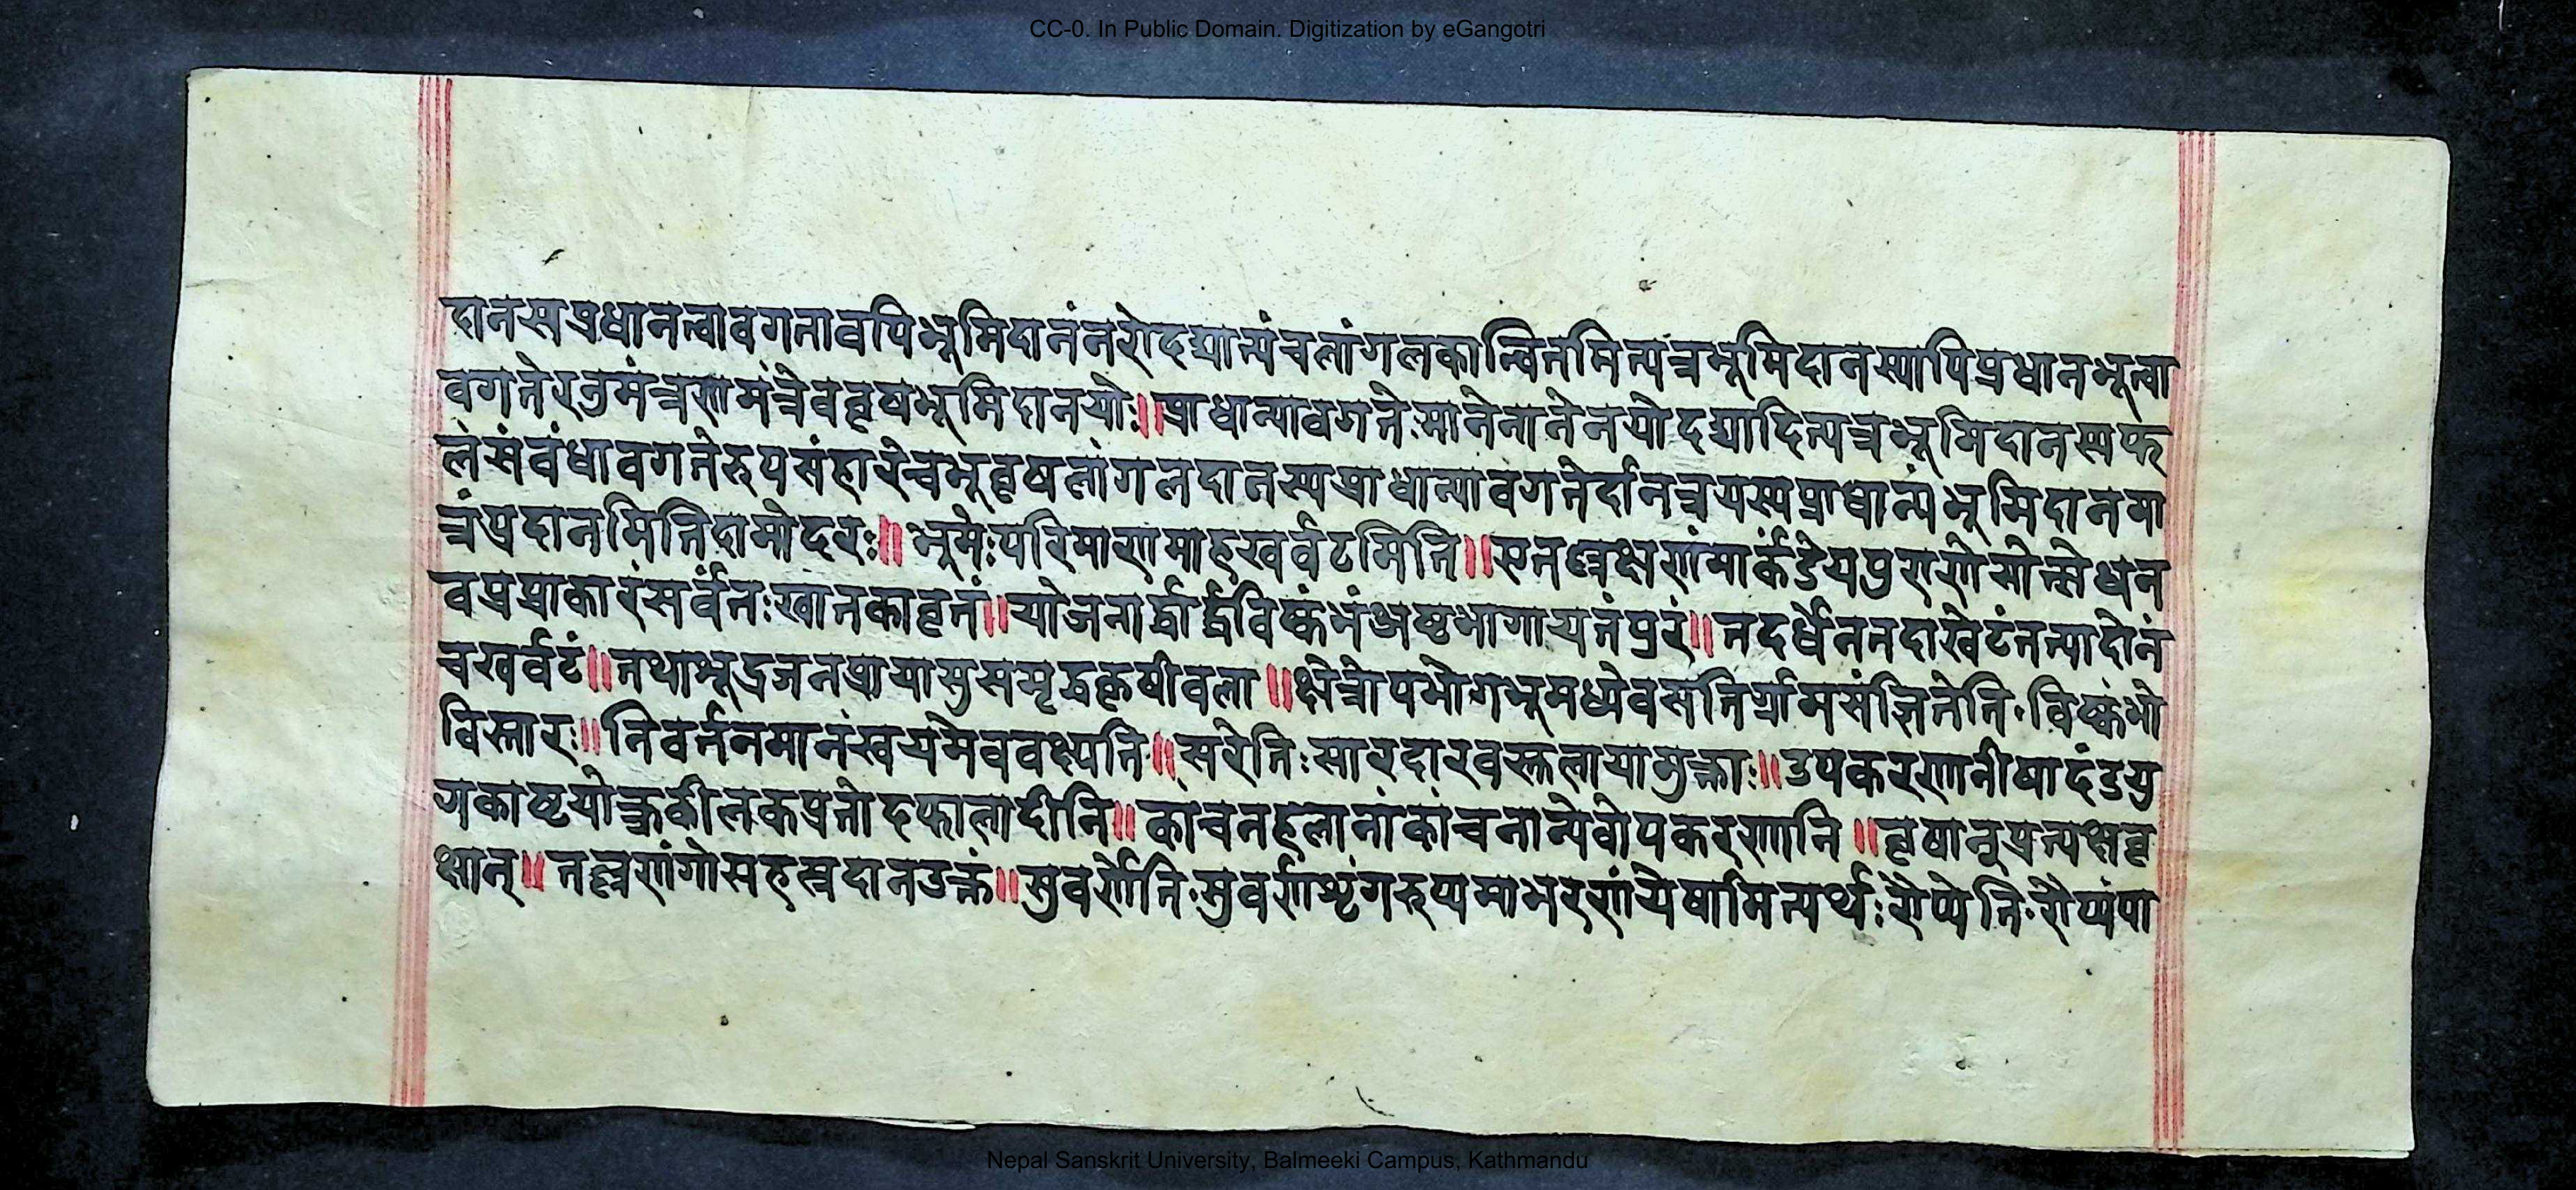 CC-0. In Public Domain. Digitization by eGangotri
दानस्यप्रधानत्वावगतावपिभूमिदानंनरोदद्यात्पंचलांगलकान्वितमित्यत्रभूमिदानस्यापिप्रधानभूत्वा
वगतेरनुमंत्रणमंत्रेवव्रषभूमिदानयोः॥प्राधान्यावगतेःमानेनानेनयोदद्यादित्यत्रभूमिदानस्यफ
लसंवंधावगतेरुपसंहारेत्वभूव्रषलांगलदानस्यप्राधान्यावगतेर्दानत्रयस्यप्राधान्यंभूमिदानमा
त्रंप्रदानमितिदामोदरः॥भूमेःपरिमाणमाहखर्वटमिति॥एतल्लक्षणंमार्कंडेयपुराणेसोत्सेधन
वप्रप्राकारंसर्वतःखातकावृतं॥योजनार्द्धार्द्धविष्कंभंअष्टभागायतंपुरं॥तदर्धेनतदाखेटंतत्पादोनं
चखर्वटं॥तथाभूद्रजनप्रायासुसमृद्धकृषीवला॥क्षेत्रोपभोगभूमध्येवसतिर्ग्रामसंज्ञितेति॰विष्कंभो
विस्तारः॥निवर्तनमानंस्वयमेववक्ष्यति॥सरेतिःसारदारवस्तलायामुक्ताः॥उपकरणानीषादंडयु
गकाष्टयोक्त्रकीलकप्रतोदफालादीनि॥कांचनहलानांकांचनान्येवोपकरणानि॥वृषानुप्रत्यक्षवृ
क्षान्॥तल्लक्षणंगोसहस्रदानउक्तं॥सुवर्णेति॰सुवर्णशृंगरुप्यमाभरणंयेषामित्यर्थःरौप्येति॰रौप्यंपा
Nepal Sanskrit University, Balmeeki Campus, Kathmandu